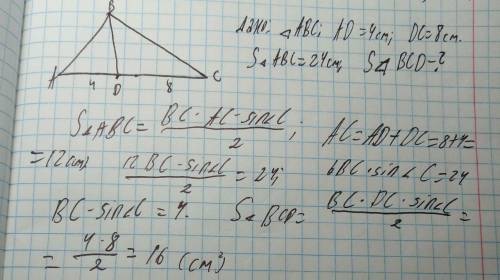 B
A 4 D 8 C
Дано: ⊿ABC; AD=4cm; DC=8cm.
S⊿ABC=24cm; S⊿BCD-?
S∠ABC= BC·AC·sin∠C / 2 ; AC=AD+DC=8+4=
=12cm; 12·BC·sin∠C / 2 = 24; 6BC·sin∠C=24
BC·sin∠C=4. S∠BCD= BC·DC·sin∠C / 2 =
= 4·8 / 2 = 16 (cm²)